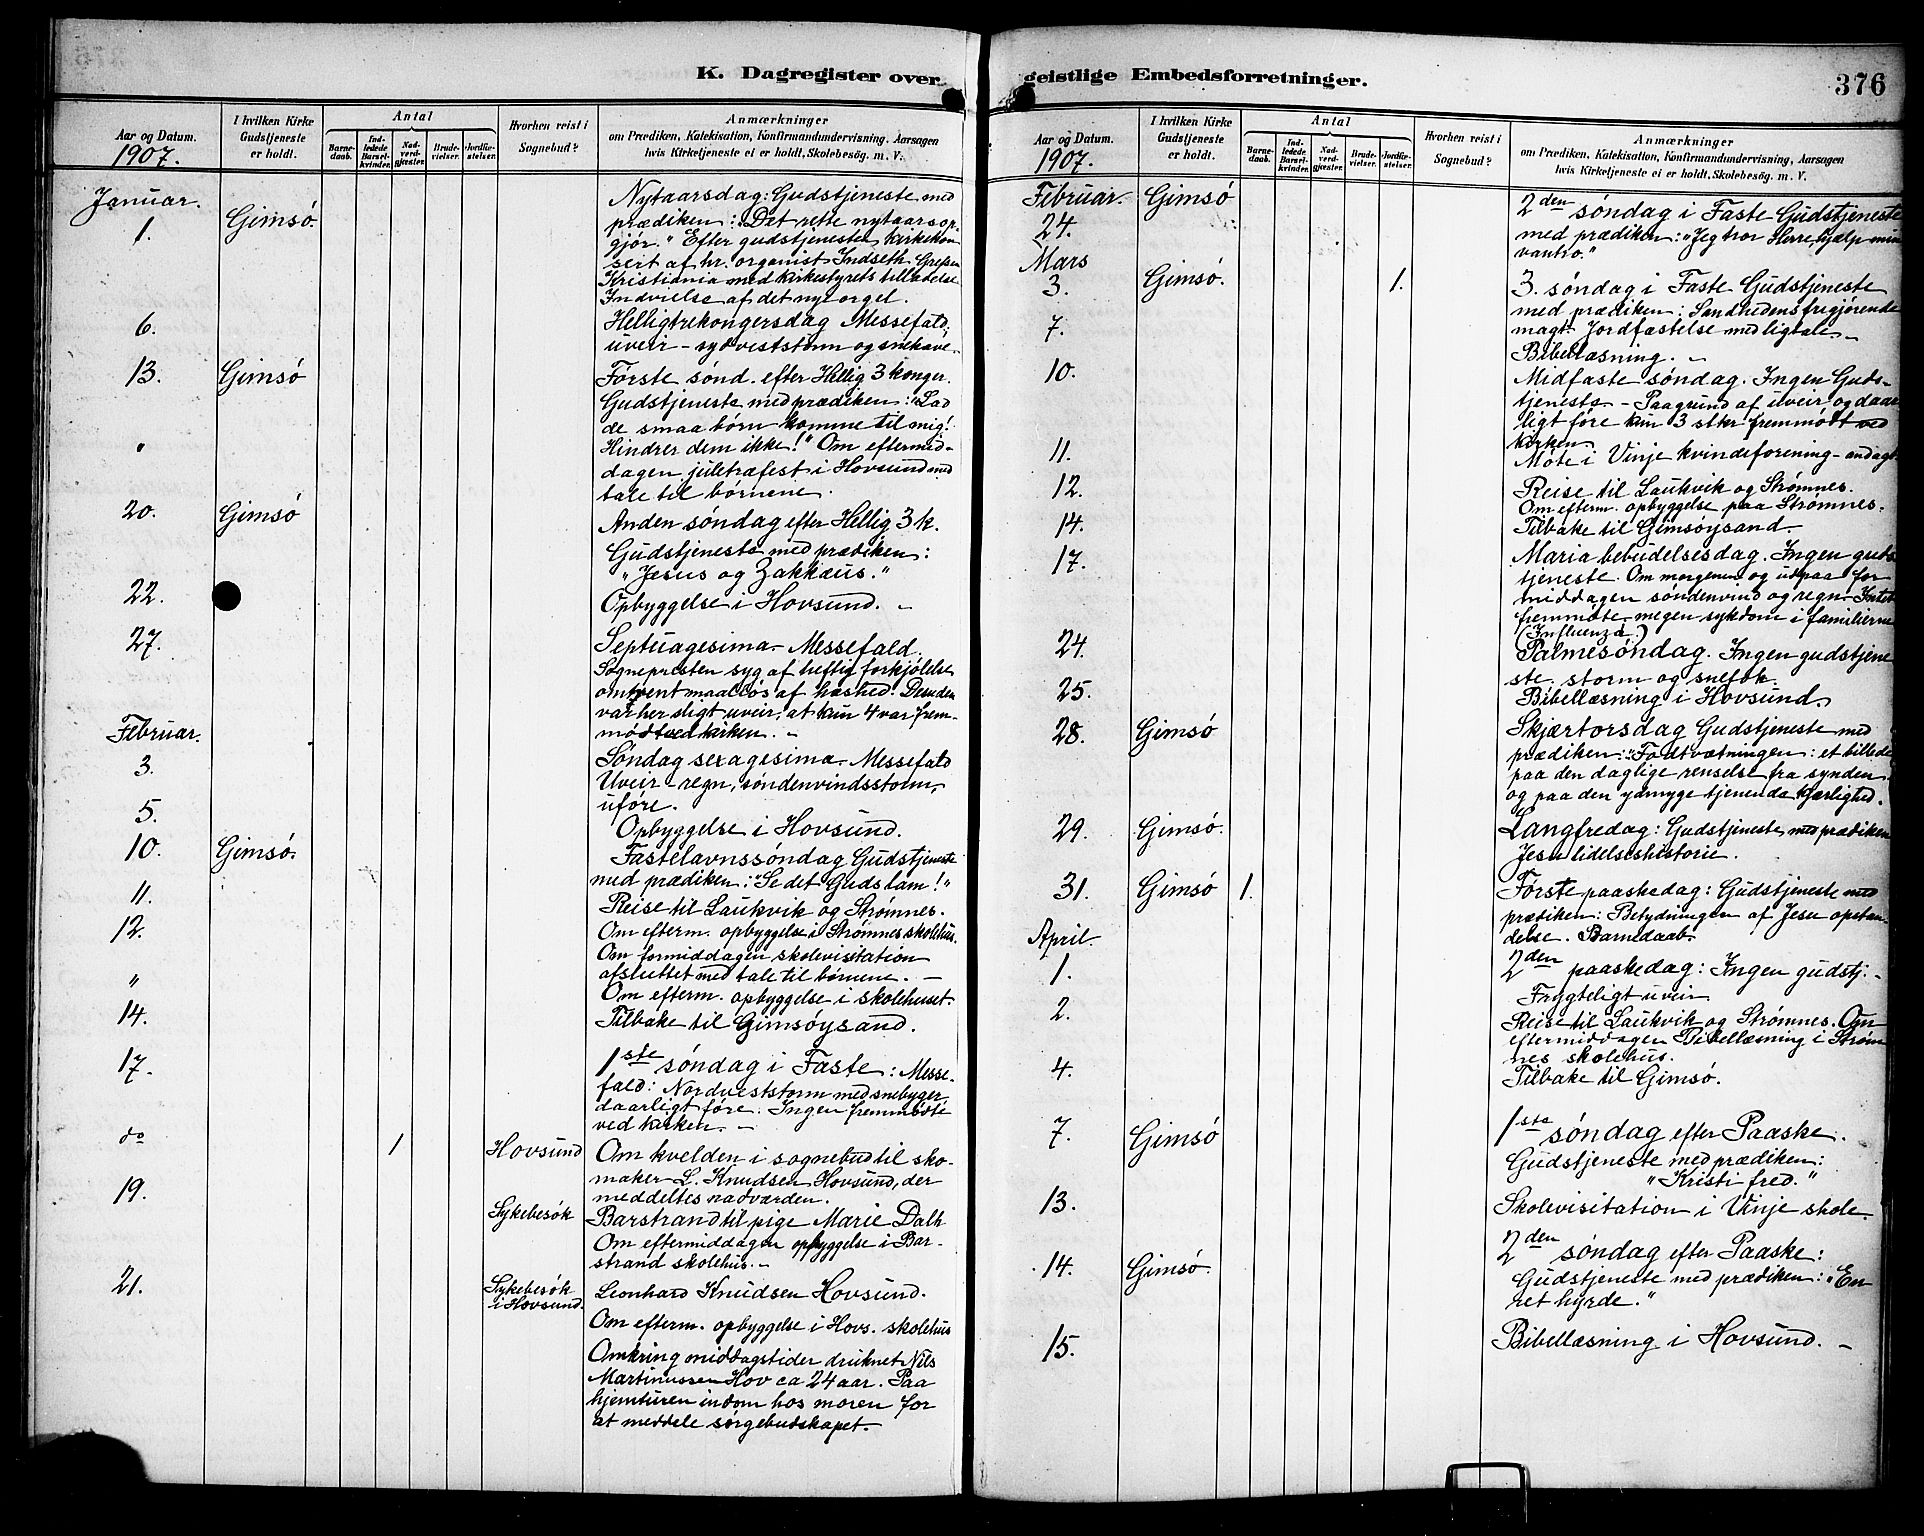 K. Dagregister over
Aar og Datum.
1907.
I hvilken Kirke Gudstjeneste er holdt.
Antal
Barnedaab.
Indledede Barselkvinder.
Nadverdgjester.
Brudevielser.
Jordfæstelser.
Hvorhen reist i Sognebud?
Anmærkninger
om Prædiken, Katekisation, Konfirmandundervisning, Aarsagen
hvis Kirketjeneste ei er holdt, Skolebesög. m. V.
Januar.
1. Gimsö. Nytaarsdag: Gudstjeneste med
prædiken: "Det rette nytaarsop-
gjör." Efter gudstjenesten kirkekon
sert af hr. organist Indseth Grefsen
Kristiania med kirkestyrets tilladelse
Indvielse af det nye orgel.
6. Helligtrekongersdag Messefald,
uveir – sydveststorm og snekave.
13. Gimsö Förste sönd. efter Hellig 3 konger.
Gudstjeneste med prædiken: "Lad
de smaa börn komme til mig!
Hindrer dem ikke!" Om eftermid-
" dagen juletræfest i Hovsund med
tale til börnene.
20. Gimsö Anden söndag efter Hellig 3 k.
Gudstjeneste med prædiken:
"Jesus og Zakkæus."
22. Opbyggelse i Hovsund. –
27. Septuagesima – Messefald.
Sognepresten syg af heftig forkjölelse
omtrent maallös af hæshed. Desuden
var her sligt uveir, at kun 4 var frem-
mödt ved kirken. –
Februar.
3. Söndag sexagesima – Messefald
Uveir – regn, söndenvindsstorm,
uföre.
5. Opbyggelse i Hovsund.
10. Gimsö. Fastelavnssöndag Gudstjeneste
med prædiken: "Se det Guds lam!"
11. Reise til Laukvik og Strømnes.
12. Om efterm. opbyggelse i Strømnes skolehus.
Om formiddagen skolevisitation
afsluttet med tale til börnene. –
" Om efterm. opbyggelse i skolehuset.
14. Tilbake til Gimsöysand.
17. 1ste söndag i Faste: Messe-
fald: Nordveststorm med snebyger,
daarligt före. Ingen fremmödte
ved kirken. –
do 1 Hovsund Om kvelden i sognebud til sko-
maker L. Knudsen Hovsund, der
meddeltes nadværden.
19. Sykebesök Barstrand til pige Marie Dalh
Om eftermiddagen opbyggelse i Bar-
strand skolehus. –
21. Sykebesök i Hovsund. Leonhard Knudsen Hovsund.
Om efterm. opbyggelse i Hovs. skolehus
Omkring middagstider druknet Nils
Martinussen Hov ca 24 aar. Paa
hjemturen indom hos moren for
at meddele sörgebudskapet. –
geistlige Embedsforretninger.
376
Aar og Datum.
1907.
I hvilken Kirke Gudstjeneste er holdt.
Antal
Barnedaab.
Indledede Barselkvinder.
Nadverdgjester.
Brudevielser.
Jordfæstelser.
Hvorhen reist i Sognebud?
Anmærkninger
om Prædiken, Katekisation, Konfirmandundervisning, Aarsagen
hvis Kirketjeneste ei er holdt, Skolebesög. m. V.
Februar. Gimsö
24. 2den söndag i Faste Gudstjeneste
med prædiken: "Jeg tror Herre, hjælp min
vantro."
Mars
3. Gimsö. 1. 3. söndag i Faste Gudstjeneste
med prædiken: Sandhedens frigjörende
magt. Jordfæstelse med ligtale. –
7. Bibellæsning. –
10. Midfaste söndag. Ingen Guds-
tjeneste – Paa grund af uveir og daar
ligt före kun 3 stkr fremmödt ved
kirken.
11. Möte i Vinje kvindeforening – andagt
12. Reise til Laukvik og Strømnes.
Om efterm. opbyggelse paa Strømnes.
14. Tilbake til Gimsöysand –
17. Maria bebudelsesdag. Ingen guds
tjeneste. Om morgenen og utpaa for
middagen söndenvind og regn – Intet
fremmöte – megen sykdom i familierne
(Influenza.)
24. Palmesöndag. Ingen gudstjene
ste. storm og snefok.
25. Bibellæsning i Hovsund.
28. Gimsö Skjærtorsdag Gudstjeneste med
prædiken: "Fodtvætningen: et billede
paa den daglige renselse fra synden
og paa den ydmyge tjenende kjærlighed.
29. Gimsö. Langfredag: Gudstjeneste med prædiken
Jesu lidelseshistorie.
31. Gimsö 1. Förste paaskedag: Gudstjeneste med
prædiken: Betydningen af Jesu opstan
delse. Barnedaab.
April.
1. 2den paaskedag: Ingen gudstj. –
Frygteligt uveir
2. Reise til Laukvik og Strømnes. Om
eftermiddagen Bibellæsning i Strøm
nes skolehus.
4. Tilbake til Gimsö.
7. Gimsö 1ste söndag efter Paaske.
Gudstjeneste med prædiken:
"Kristi fred."
13. Skolevisitation i Vinje skole.
14. Gimsö. 2den söndag efter Paaske:
Gudstjeneste med prædiken: "En
ret hyrde."
15. Bibellæsning i Hovsund. –